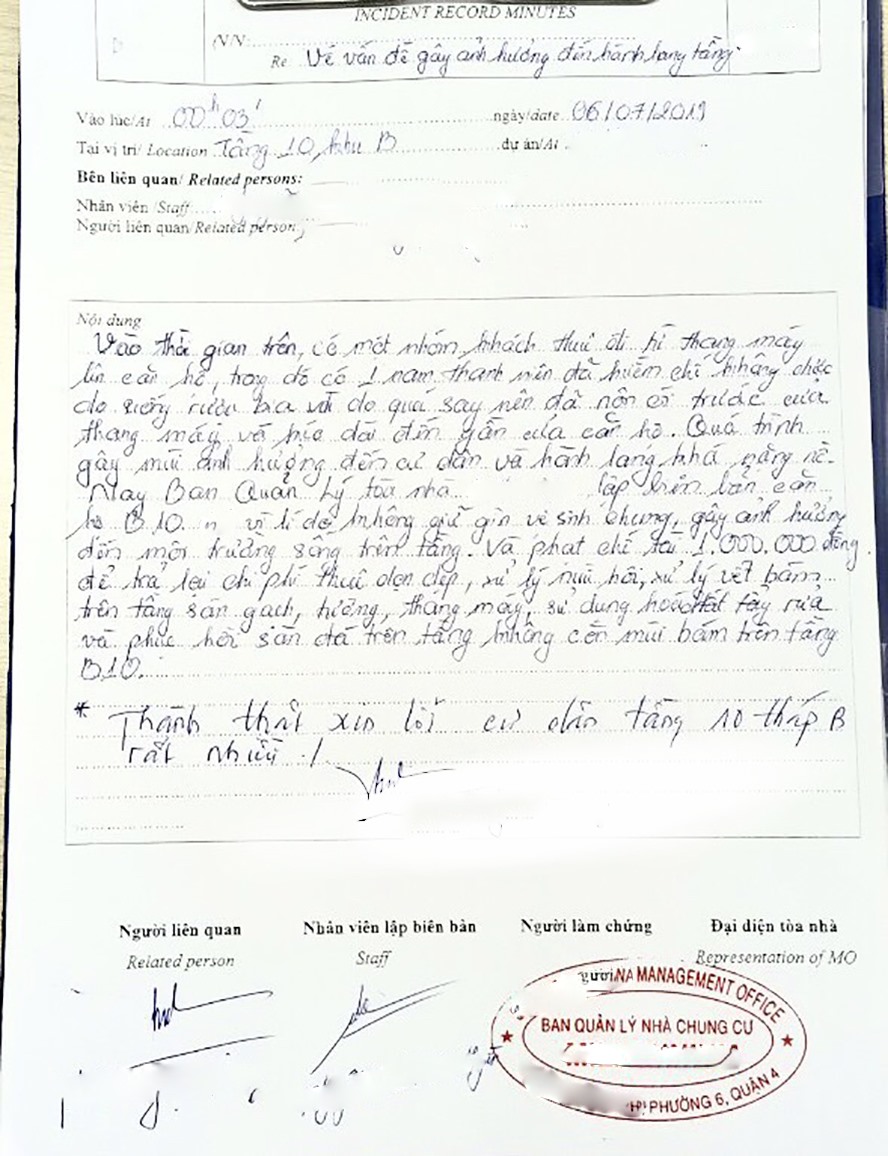 INCIDENT RECORD MINUTES
(V/V:
Re Về vấn đề gây ảnh hưởng đến hành lang tầng.
Vào lúc/At 00h 03' ngày/date 06/07/2019
Tại vị trí/ Location Tầng 10, khu B dự án/At
Bên liên quan/ Related persons:
Nhân viên /Staff
Người liên quan/Related person
Nội dung
Vào thời gian trên, có một nhóm khách thuê đi thang máy
lên căn hộ, trong đó có 1 nam thanh niên đã kiềm chế không được
do uống rượu bia và do quá say nên đã nôn ói trước cửa
thang máy và kéo dài đến gần cửa căn hộ. Quá trình
gây mùi ảnh hưởng đến cư dân và hành lang khá nặng nề.
Nay Ban Quản Lý tòa nhà lập biên bản căn
hộ B10 vì lí do không giữ gìn vệ sinh chung, gây ảnh hưởng
đến môi trường sống trên tầng. Và phạt chế tài 1.000.000 đồng
để trả lại chi phí thuê dọn dẹp, xử lý mùi hôi, xử lý vết bám
trên tầng sàn gạch, tường, thang máy, sử dụng hoá chất tẩy rửa
và phục hồi sàn đá trên tầng không còn mùi bám trên tầng
B10.
* Thành thật xin lỗi cư dân tầng 10 tháp B
rất nhiều !
Người liên quan Nhân viên lập biên bản Người làm chứng Đại diện tòa nhà
Related person Staff Representation of MO
MANAGEMENT OFFICE
BAN QUẢN LÝ NHÀ CHUNG CƯ
PHƯỜNG 6, QUẬN 4